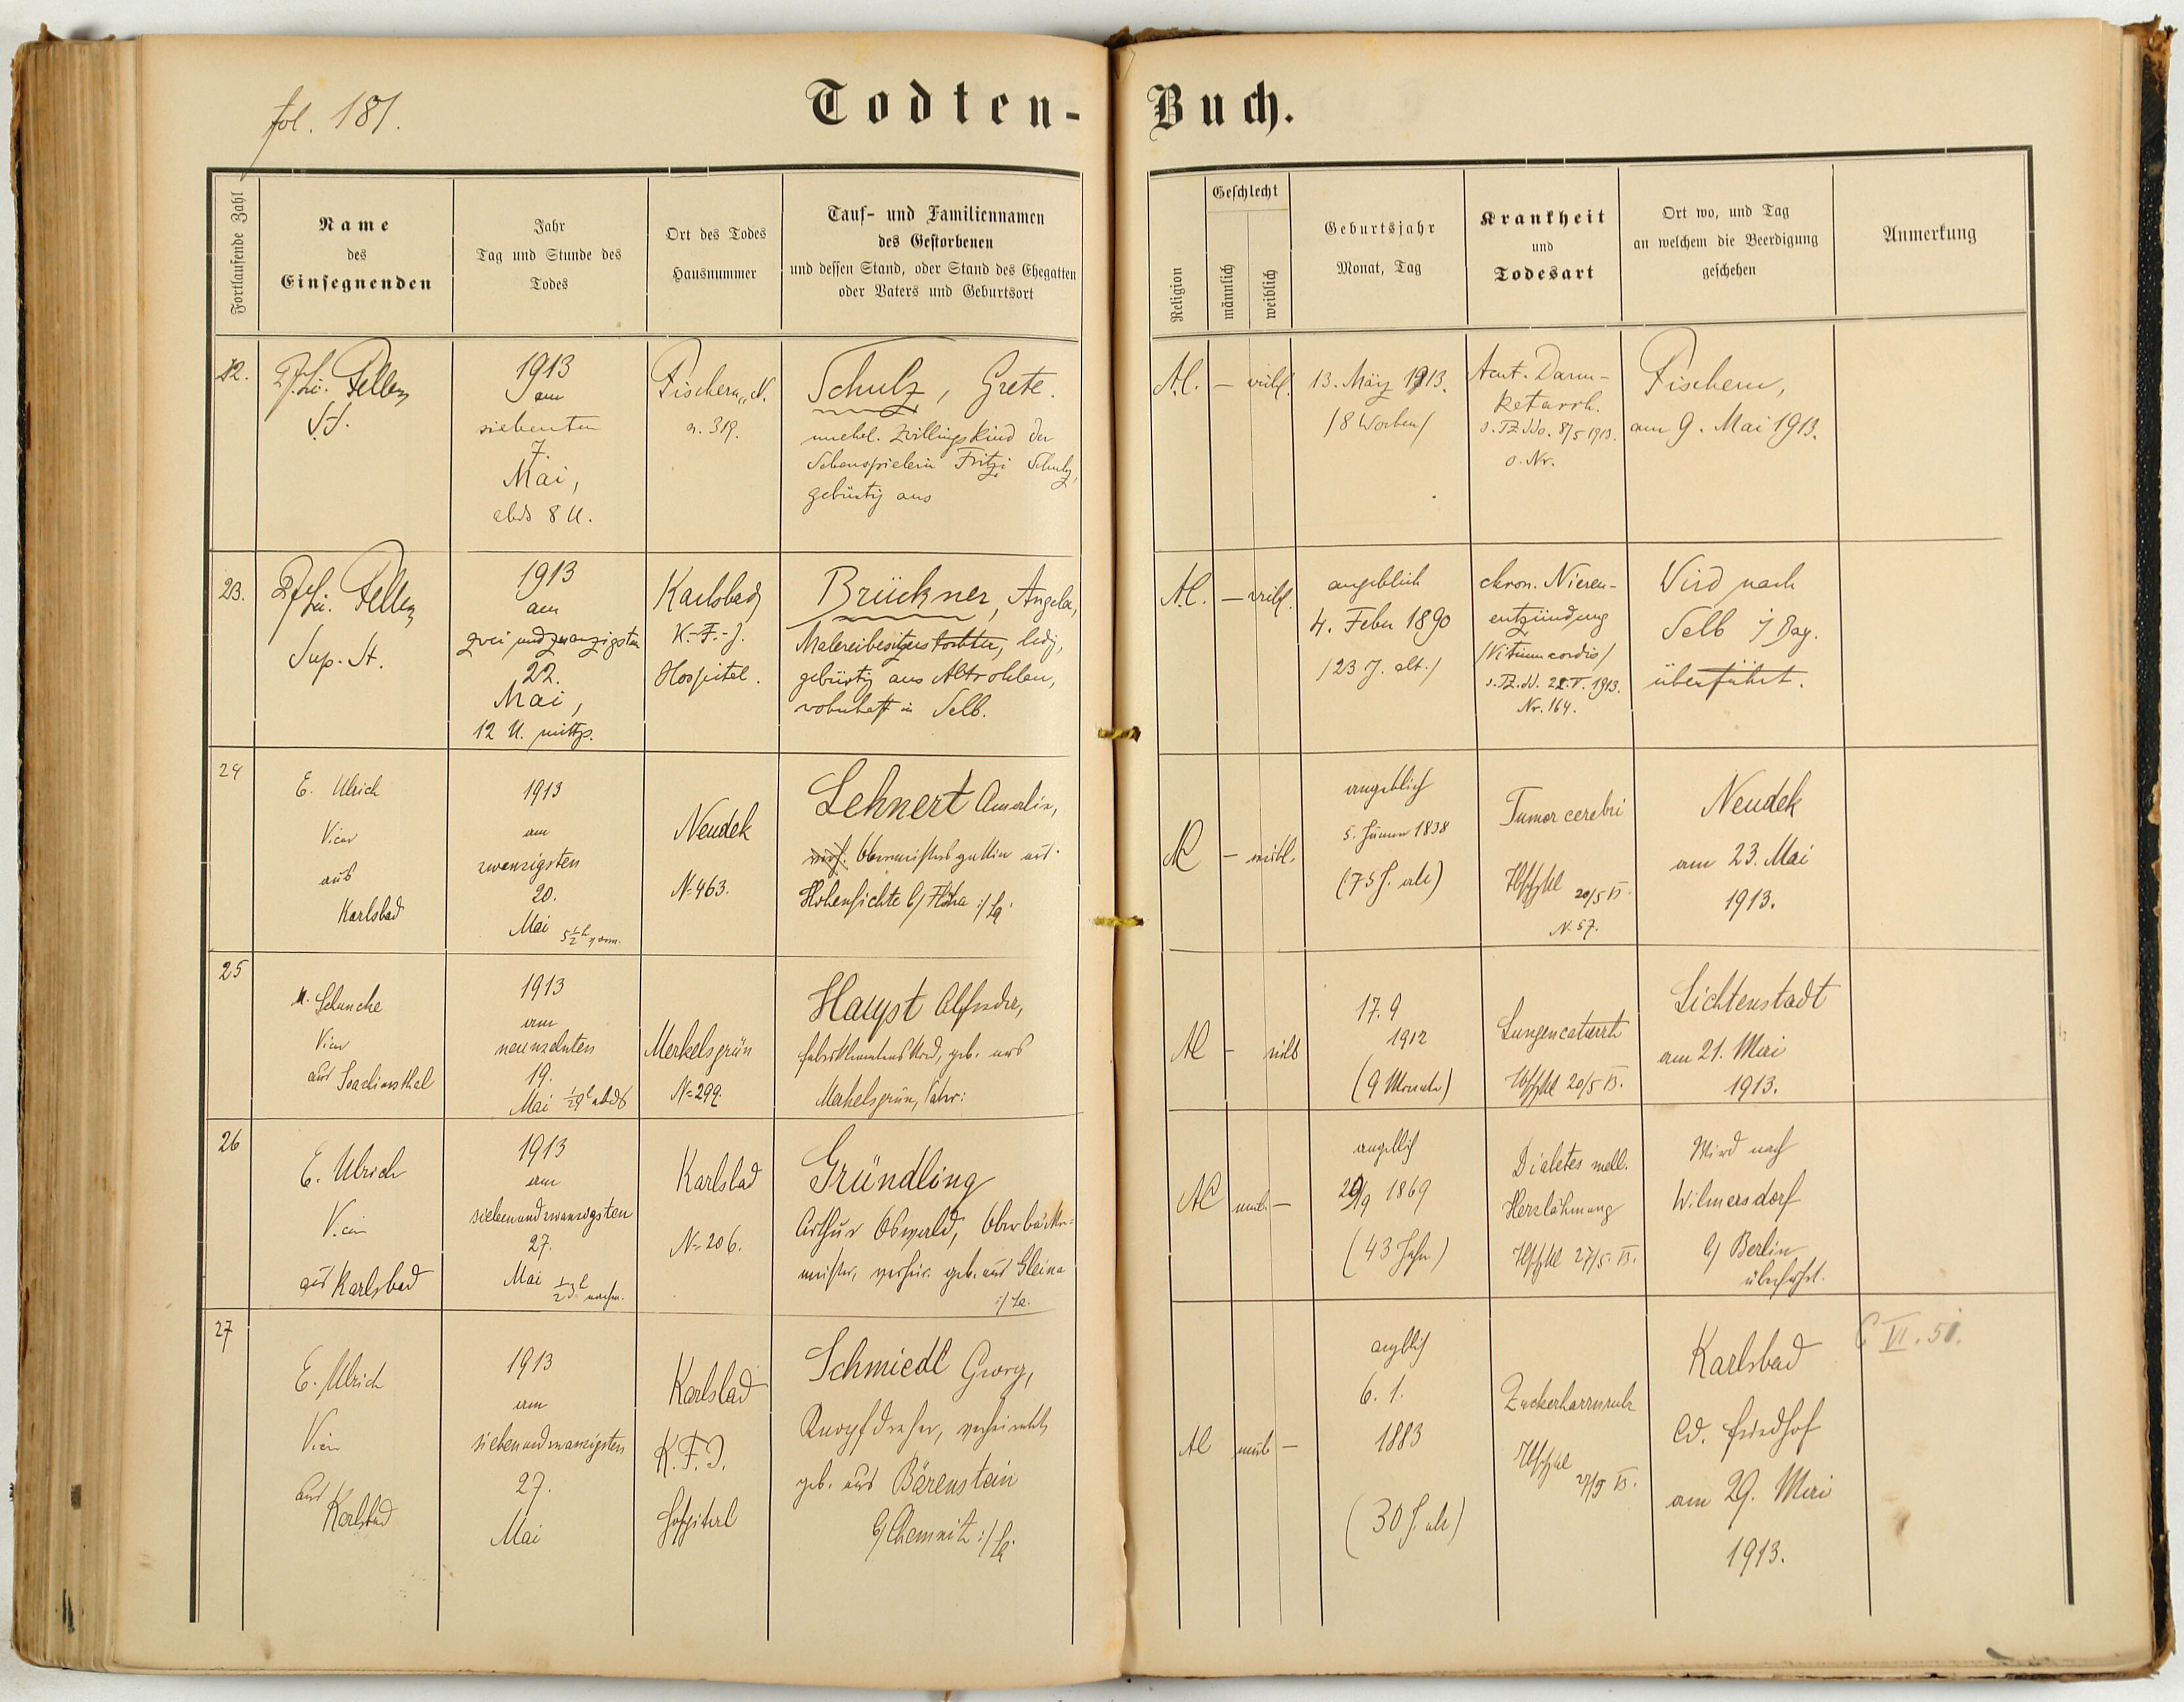 fol. 181.
Todten-Buch.
Fortlaufende Zahl
Name
des
Einsegnenden
Jahr
Tag und Stunde des
Todes
Ort des Todes
Hausnummer
Tauf- und Familiennamen
des Gestorbenen
und dessen Stand, oder Stand des Ehegatten
oder Vaters und Geburtsort
Religion
Geschlecht
männlich
weiblich
Geburtsjahr
Monat, Tag
Krankheit
und
Todesart
Ort wo, und Tag
an welchem die Beerdigung
geschehen
Anmerkung
22.
1913
am
siebenten
7.
Mai,
abds 8 U.
Fischern,
n. 319.
Schulz, Grete.
unehel. Zwillingskind der
Schauspielerin Fritzi Schulz,
gebürtig aus
A.C.
— weibl.
13. März 1913.
/8 Wochen/
Acut. Darm-
katarrh.
8/5 1913.
o. Nr.
Fischern,
am 9. Mai 1913.
23.
Sup. St.
1913
am
zwei und zwanzigsten
22.
Mai,
12 U. mittgs.
Karlsbad
K.-F.-J.
Hospital.
Brückner, Angela,
Malereibesitzerstochter, ledig,
gebürtig aus Altrohlau,
wohnhaft in Selb.
A.C.
— weibl.
angeblich
4. Feber 1890
/23 J. alt./
chron. Nieren-
entzündung
/Vitium cordis/
22.V. 1913.
Nr. 164.
Wird nach
Selb i/Bay.
überführt.
24
E. Ulrich
Vicar
aus
Karlsbad
1913
am
zwanzigsten
20.
Mai 5½ h vorm.
Neudek
N=463.
Lehnert Amalie,
Obermeistersgattin aus
Hohenfichte b/ Flöha i/Sa.
AC
— weibl.
angeblich
5. Jänner 1838
(75 J. alt)
Tumor cerebri
20/5 13.
N. 57.
Neudek
am 23. Mai
1913.
25
Vicar
aus Joachimsthal
1913
am
neunzehnten
19.
Mai ½9 h abds
Merkelsgrün
N=299.
Haupt
geb. aus
Merkelsgrün,
AC
— weibl
17. 9
1912
(9 Monate)
Lungencatarrh
20/5 13.
Lichtenstadt
am 21. Mai
1913.
26
E. Ulrich
Vicar
aus Karlsbad
1913
am
siebenundzwanzigsten
27.
Mai ½3 h nachm.
Karlsbad
N=206.
Gründling
Arthur Oswald,
meister, verheir. geb. aus Gleina
i/Sa.
AC
männl. —
angeblich
29/9 1869
(43 Jahre)
Diabetes mell.
Herzlähmung
27/5. 13.
Wird nach
Wilmersdorf
b/ Berlin
überführt.
27
E. Ulrich
Vicar
aus
Karlsbad
1913
am
siebenundzwanzigsten
27.
Mai
Karlsbad
K.F.J.
Hospital
Schmiedl Georg,
Knopfdreher, verheiratet,
geb. aus Bärenstein
b/ Chemnitz i/Sa.
AC
männl —
angeblich
6. 1.
1883
(30 J. alt)
Zuckerharnruhr
27/5 13.
Karlsbad
ev. Friedhof
am 29. Mai
1913.
C VI. 51.